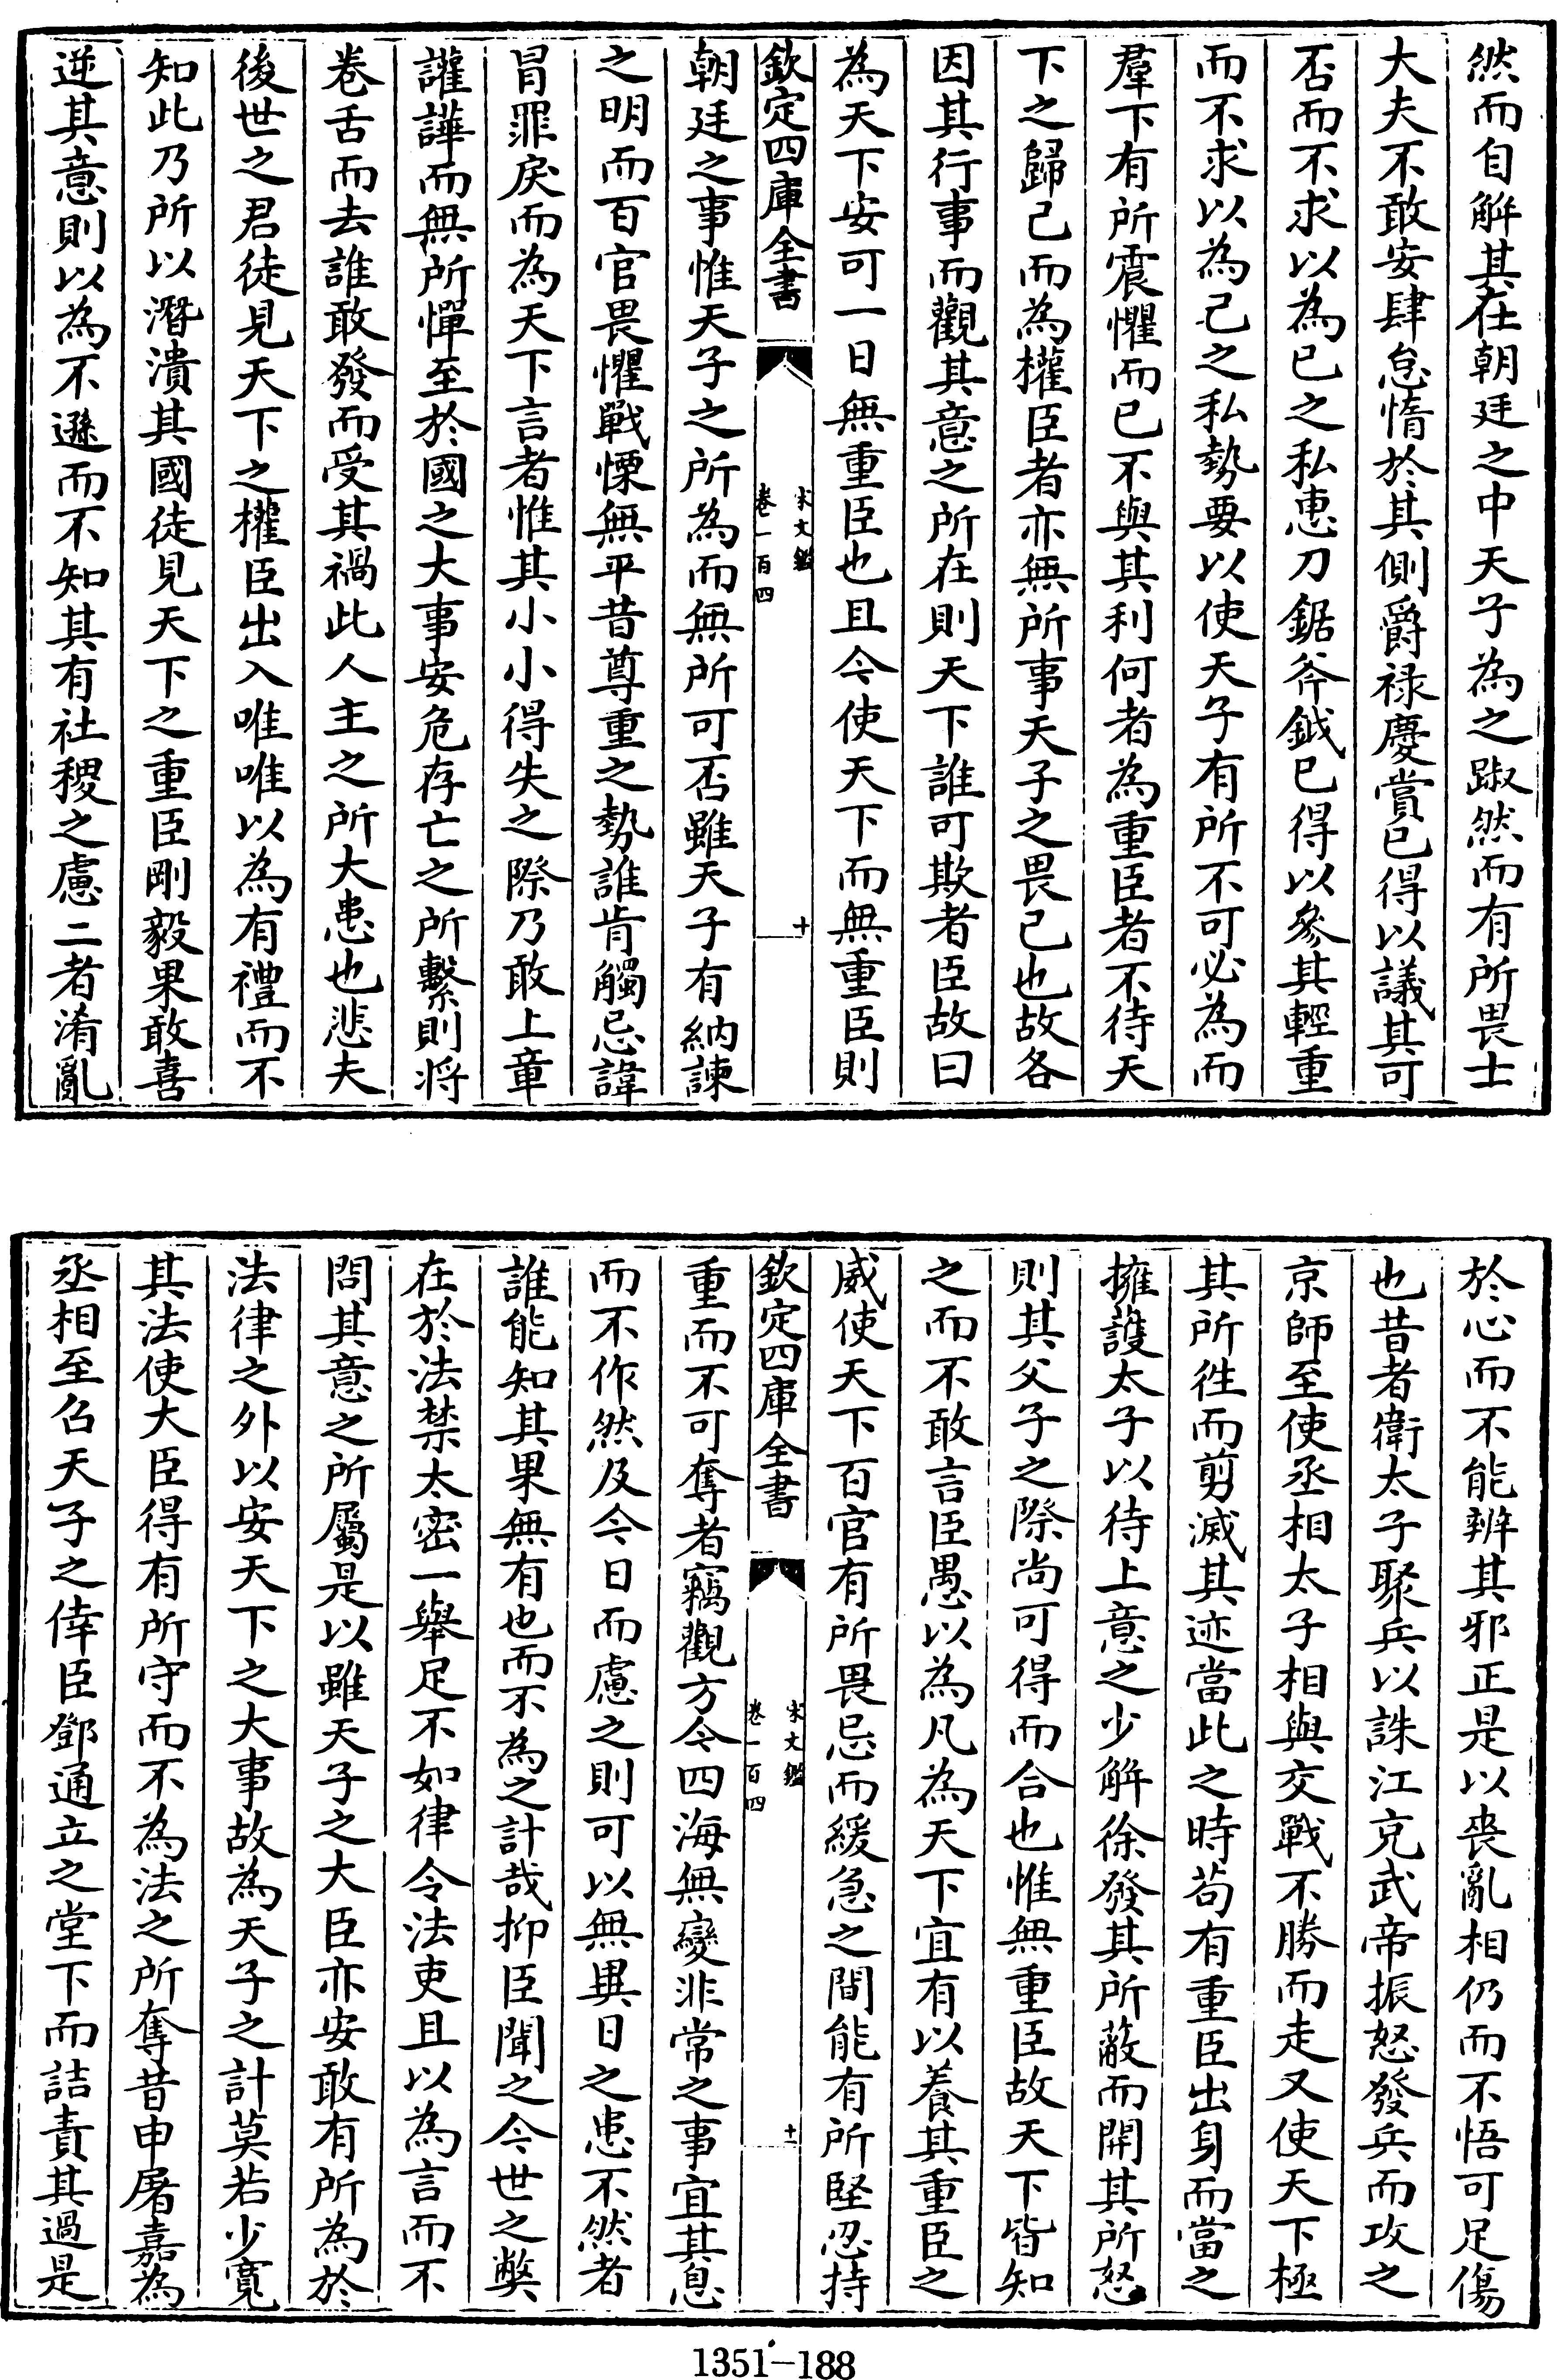 然而自解其在朝廷之中天子為之踧然而有所畏士
大夫不敢安肆怠惰於其側爵禄慶賞已得以議其可
否而不求以為已之私惠刀鋸斧鉞已得以參其輕重
而不求以為己之私勢要以使天子有所不可必為而
羣下有所震懼而已不與其利何者為重臣者不待天
下之歸己而為權臣者亦無所事天子之畏己也故各
因其行事而觀其意之所在則天下誰可欺者臣故曰
為天下安可一日無重臣也且今使天下而無重臣則
欽定四庫全書
宋文鑑
卷一百四
十
朝廷之事惟天子之所為而無所可否雖天子有納諫
之明而百官畏懼戰慄無平昔尊重之勢誰肯觸忌諱
冒罪戾而為天下言者惟其小小得失之際乃敢上章
讙譁而無所憚至於國之大事安危存亡之所繫則將
卷舌而去誰敢發而受其禍此人主之所大患也悲夫
後世之君徒見天下之權臣出入唯唯以為有禮而不
知此乃所以潛潰其國徒見天下之重臣剛毅果敢喜
逆其意則以為不遜而不知其有社稷之慮二者淆亂
於心而不能辨其邪正是以喪亂相仍而不悟可足傷
也昔者衛太子聚兵以誅江充武帝振怒發兵而攻之
京師至使丞相太子相與交戰不勝而走又使天下極
其所徃而剪滅其迹當此之時茍有重臣出身而當之
擁護太子以待上意之少解徐發其所蔽而開其所怒
則其父子之際尚可得而合也惟無重臣故天下皆知
之而不敢言臣愚以為凡為天下宜有以養其重臣之
威使天下百官有所畏忌而緩急之間能有所堅忍持
欽定四庫全書
宋文鑑
卷一百四
十一
重而不可奪者竊觀方今四海無變非常之事宜其息
而不作然及今日而慮之則可以無異日之患不然者
誰能知其果無有也而不為之計哉抑臣聞之今世之弊
在於法禁太密一舉足不如律令法吏且以為言而不
問其意之所屬是以雖天子之大臣亦安敢有所為於
法律之外以安天下之大事故為天子之計莫若少寛
其法使大臣得有所守而不為法之所奪昔申屠嘉為
丞相至召天子之倖臣鄧通立之堂下而詰責其過是
1351-188